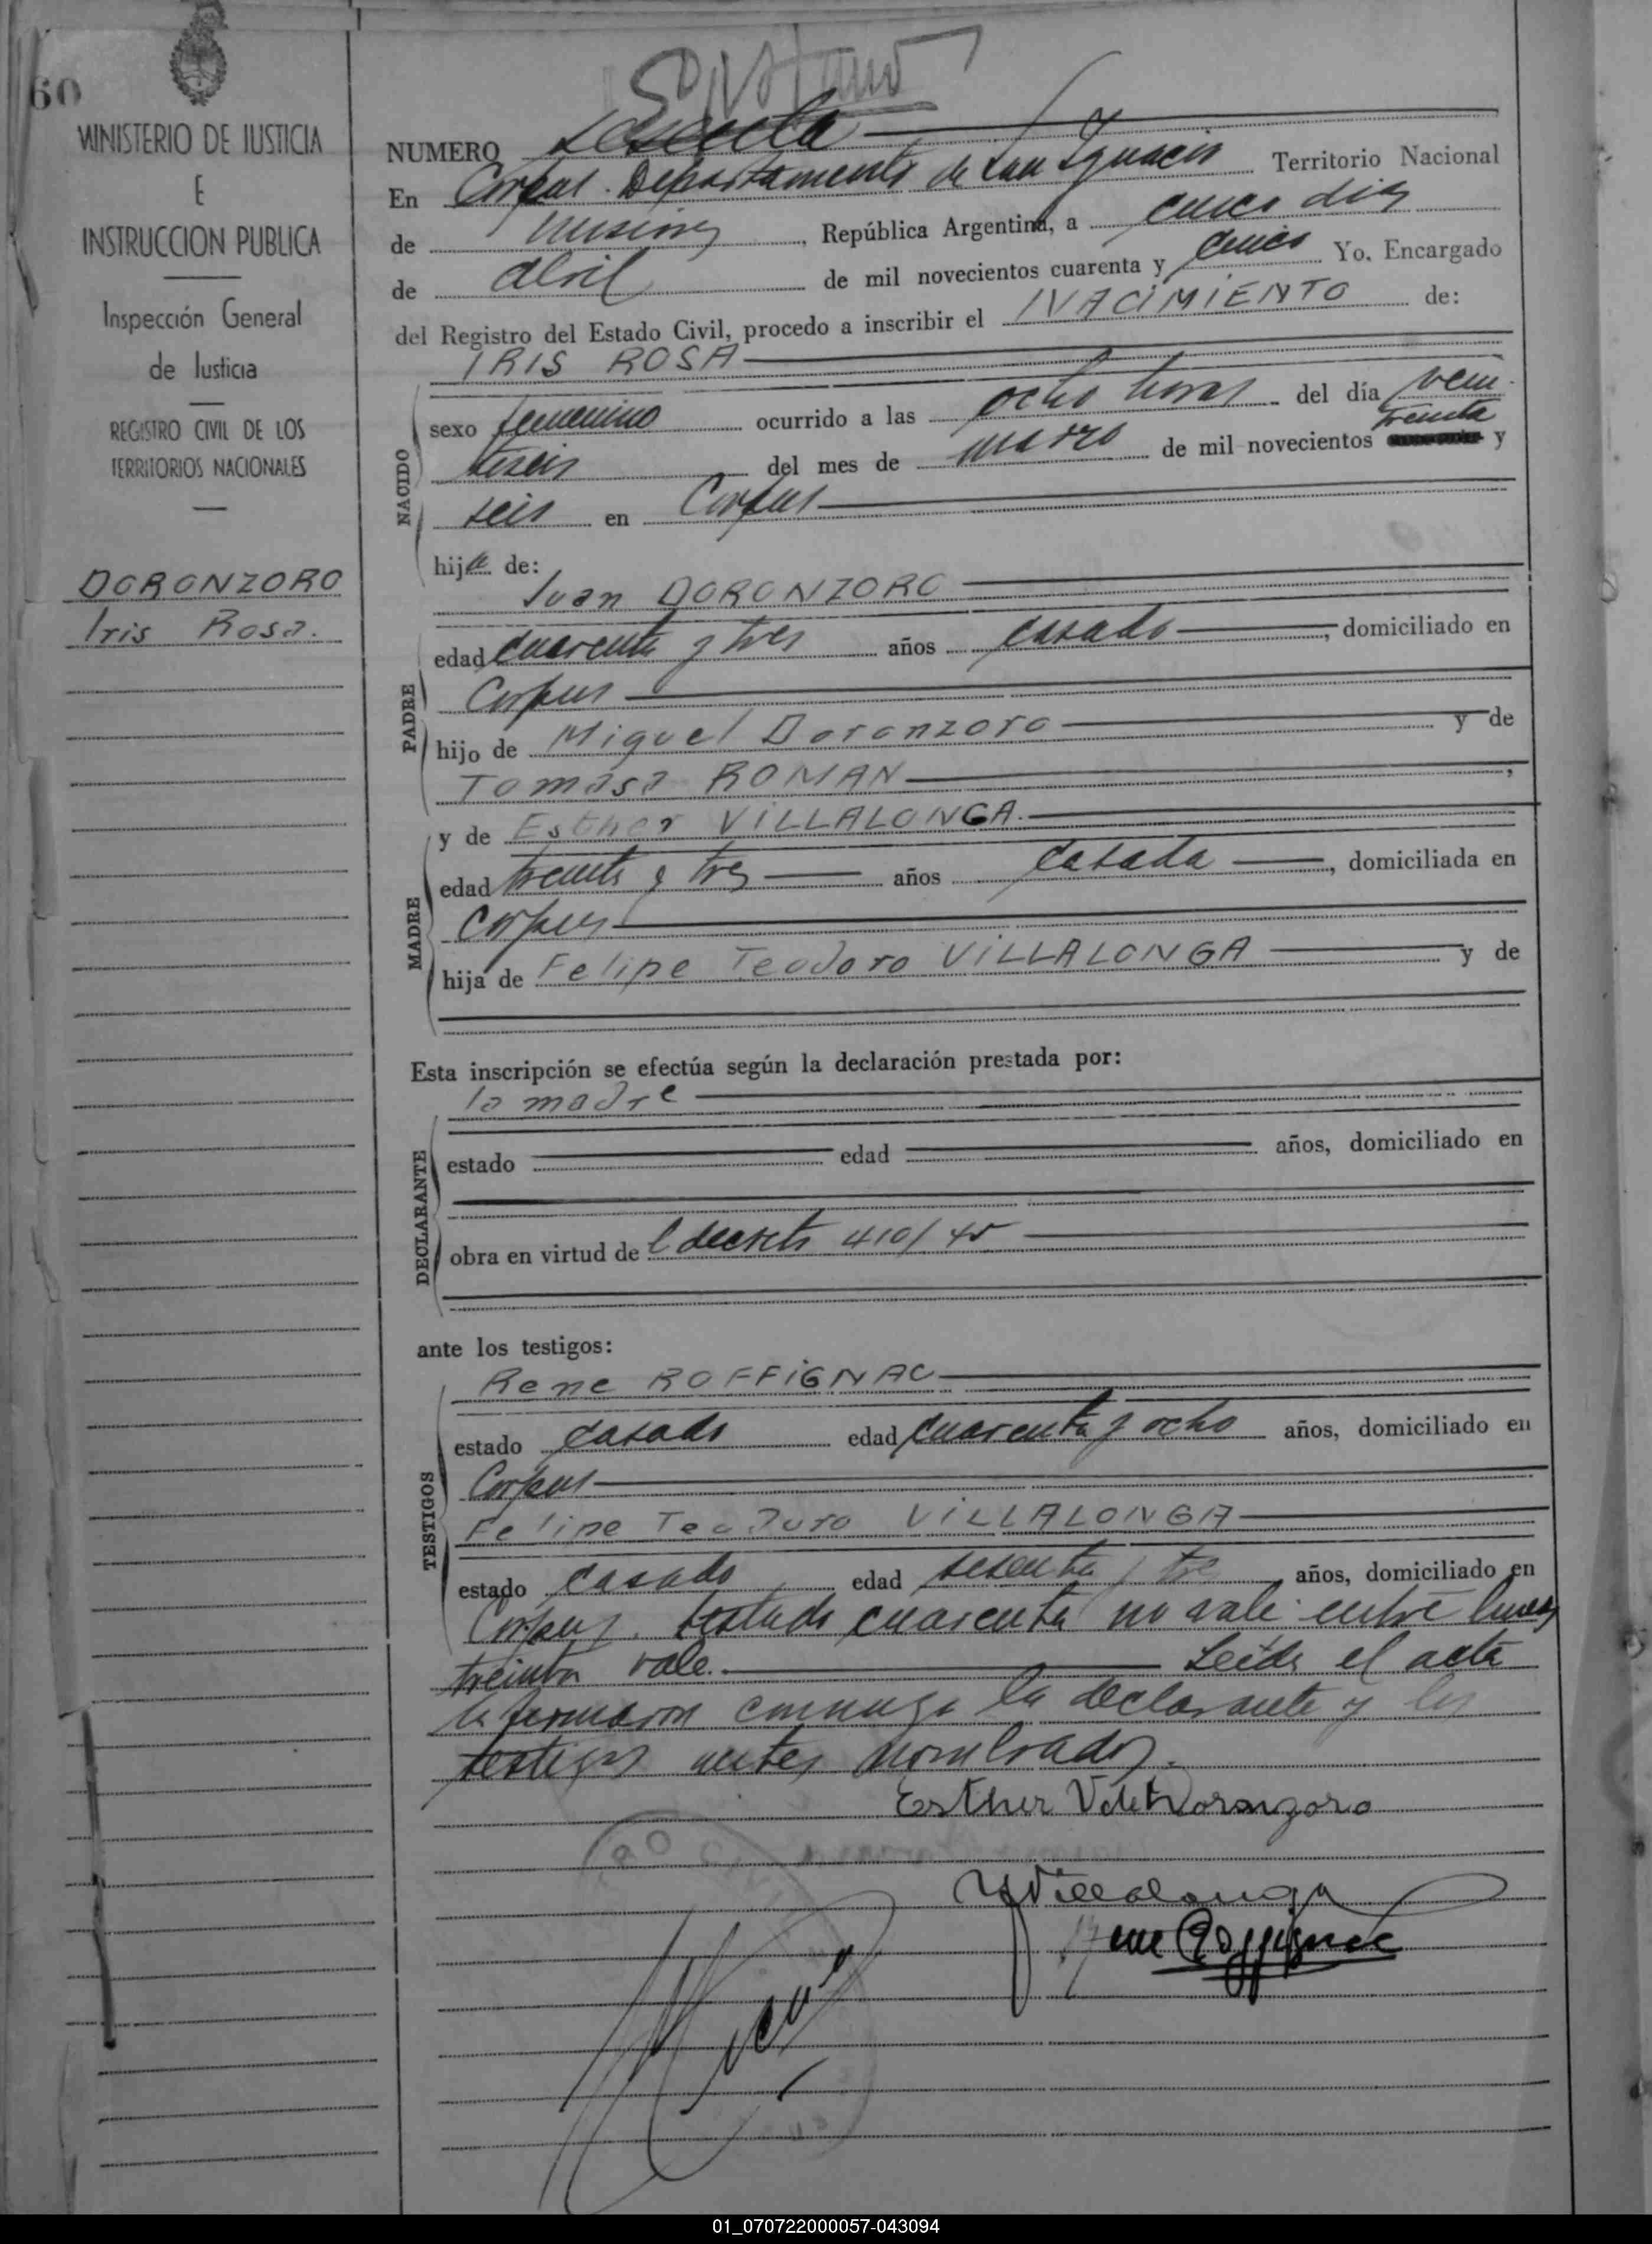 60
MINISTERIO DE JUSTICIA
E
INSTRUCCION PUBLICA
Inspección General
de Justicia
REGISTRO CIVIL DE LOS
TERRITORIOS NACIONALES
DORONZORO
Iris Rosa.
NUMERO sesenta
En Corpus. Departamento de San Ignacio Territorio Nacional
de Misiones, República Argentina, a cinco dias
de abril de mil novecientos cuarenta y cinco Yo, Encargado
del Registro del Estado Civil, procedo a inscribir el NACIMIENTO de:
IRIS ROSA
NACIDO
sexo femenino ocurrido a las ocho horas del día vein-
treinta
tiseis del mes de marzo de mil novecientos y
seis en Corpus
hija de:
Juan DORONZORO
PADRE
edad cuarenta y tres años casado, domiciliado en
Corpus
hijo de Miguel Doronzoro y de
Tomasa ROMAN,
MADRE
y de Esther VILLALONGA.
edad treinta y tres años casada, domiciliada en
Corpus
hija de Felipe Teodoro VILLALONGA y de
Esta inscripción se efectúa según la declaración prestada por:
la madre
DECLARANTE
estado edad años, domiciliado en
obra en virtud de l decreto 410/45
ante los testigos:
TESTIGOS
Rene ROFFIGNAC
estado casado edad cuarenta y ocho años, domiciliado en
Corpus
Felipe Teodoro VILLALONGA
estado casado edad sesenta y tres años, domiciliado en
Corpus. testado cuarenta no vale entre lineas
treinta vale. Leida el acta
la firmaron conmigo la declarante y los
testigos antes nombrados.
Esther V de Doronzoro
Villalonga
Rene Roffignac
01_070722000057-043094